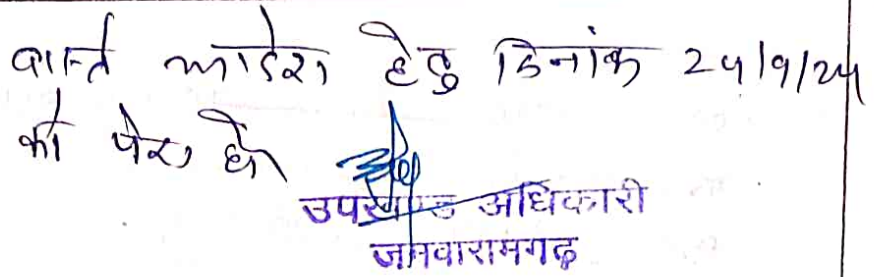 वास्ते आदेश हेतु दिनांक 24/9/24
को पेश हो
उपखण्ड अधिकारी
जमवारामगढ़